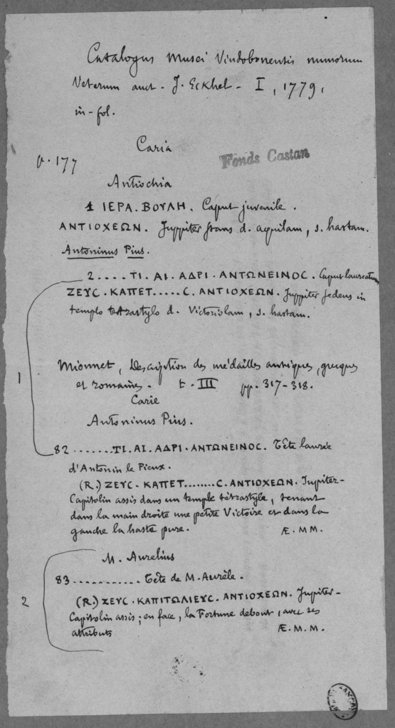 Catalogus Musei Vindobonensis numorum
Veterum auct. J. Eckhel - I, 1779,
in-fol.
Caria
p. 177
Fonds Castan
Antiochia
1 ΙΕΡΑ. ΒΟΥΛΗ. Caput juvenile.
ΑΝΤΙΟΧΕΩΝ. Juppiter stans d. aquilam, s. hastam.
Antoninus Pius.
2.... ΤΙ. ΑΙ. ΑΔΡΙ. ΑΝΤΩΝΕΙΝΟC. Caput laureatum
ΖΕΥC. ΚΑΠΕΤ.....C. ΑΝΤΙΟΧΕΩΝ. Juppiter sedens in
templo tetrastylo d. Victoriolam, s. hastam.
1
Mionnet, Description des médailles antiques, grecques
et romaines. t. III pp. 317-318.
Carie
Antoninus Pius.
82 .......ΤΙ. ΑΙ. ΑΔΡΙ. ΑΝΤΩΝΕΙΝΟC. Tête laurée
d'Antonin le Pieux.
(R.) ΖΕΥC. ΚΑΠΕΤ........C. ΑΝΤΙΟΧΕΩΝ. Jupiter-
Capitolin assis dans un temple tétrastyle, tenant
dans la main droite une petite Victoire et dans la
gauche la haste pure. Æ. MM.
M. Aurelius
83 ........... Tête de M. Aurèle.
2
(R.) ΖΕΥC. ΚΑΠΙΤΩΛΙΕΥC. ΑΝΤΙΟΧΕΩΝ. Jupiter-
Capitolin assis; en face, la Fortune debout, avec ses
attributs Æ. M. M.